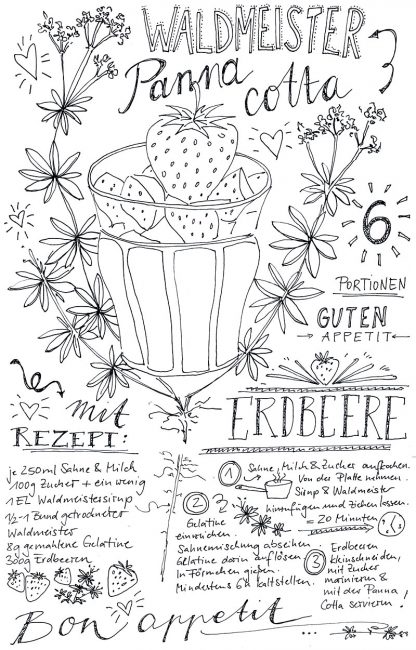 WALDMEISTER
Panna
cotta
6
PORTIONEN
GUTEN
APPETIT
mit
ERDBEERE
REZEPT:
je 250ml Sahne & Milch
100g Zucker + ein wenig
1 EL Waldmeistersirup
½-1 Bund getrockneter
Waldmeister
8g gemahlene Gelatine
300g Erdbeeren
1 Sahne, Milch & Zucker aufkochen.
Von der Platte nehmen.
Sirup & Waldmeister
hinzufügen und ziehen lassen.
= 20 Minuten
2 Gelatine
einweichen.
Sahnemischung abseihen
Gelatine darin auflösen
In Förmchen gießen.
Mindestens 6h kaltstellen.
3 Erdbeeren
kleinschneiden,
mit Zucker
marinieren &
mit der Panna
Cotta servieren!
Bon appetit ...